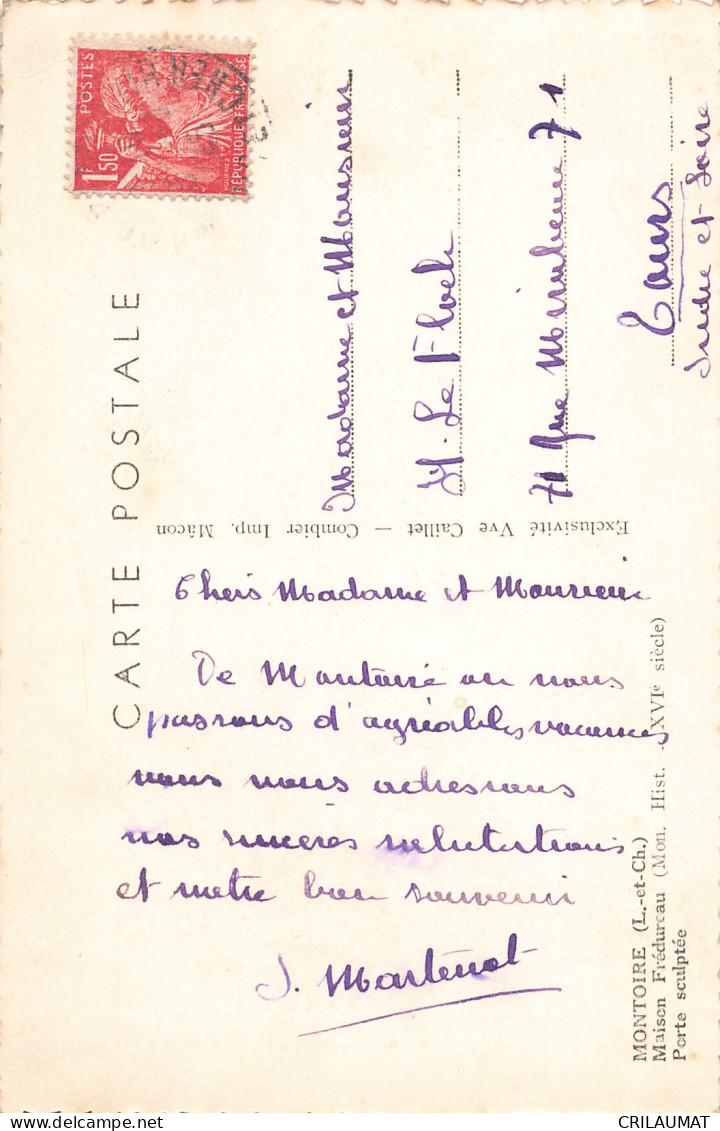 CARTE POSTALE
POSTES
1F50
RÉPUBLIQUE FRANÇAISE
Madame et Monsieur
Le Floch
71 Rue Mirabeau 71
Tours
Indre et Loire
Exclusivité Vve Caillet — Combier Imp. Mâcon
Chers Madame et Monsieur
De Montoire ou nous
passons d'agréables vacances
nous nous adressons
nos sincères salutations
et notre bon souvenir
J. Martenot
MONTOIRE (L.-et-Ch.)
Maison Frédureau (Mon. Hist. - XVIe siècle)
Porte sculptée
CRILAUMAT